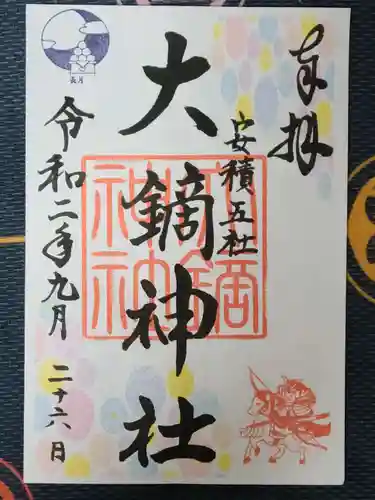 奉拝
安積五社
大鏑神社
令和二年九月二十六日
長月
大鏑
神社